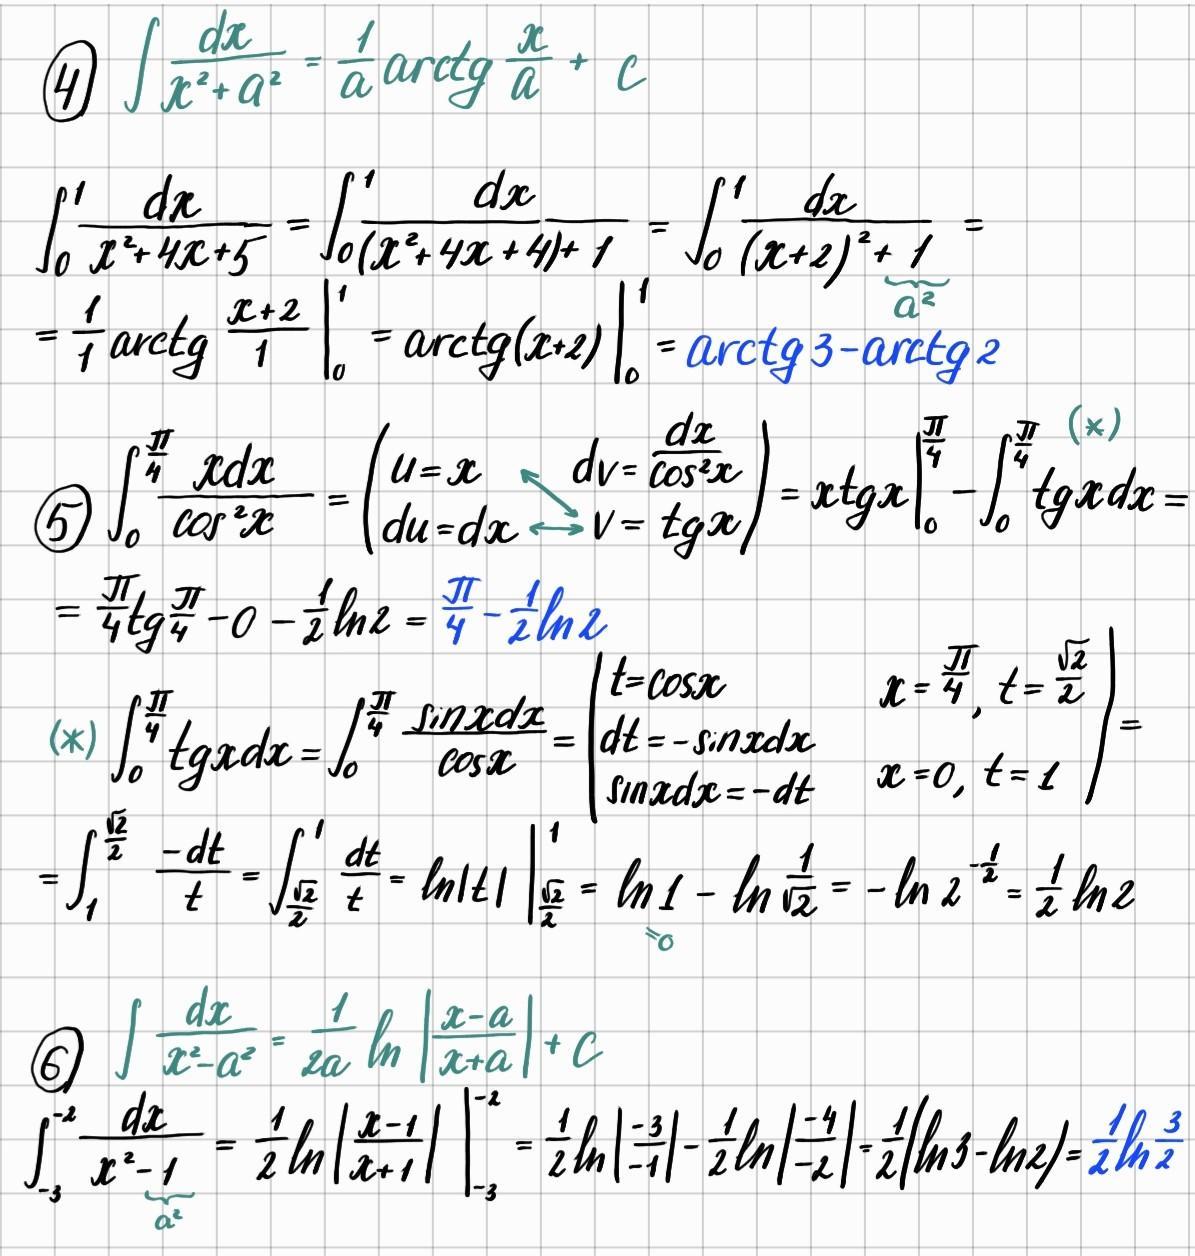 ④ ∫ dx/(x²+a²) = 1/a arctg x/a + c
∫₀¹ dx/(x²+4x+5) = ∫₀¹ dx/((x²+4x+4)+1) = ∫₀¹ dx/((x+2)²+1) =
a²
= 1/1 arctg (x+2)/1 |₀¹ = arctg(x+2) |₀¹ = arctg 3 - arctg 2
(*)
⑤ ∫₀^(π/4) xdx/cos²x = ( u = x dv = dx/cos²x
du = dx v = tgx ) = xtgx |₀^(π/4) - ∫₀^(π/4) tgxdx =
= π/4 tg π/4 - 0 - 1/2 ln2 = π/4 - 1/2 ln2
(*) ∫₀^(π/4) tgxdx = ∫₀^(π/4) sinxdx/cosx = | t=cosx x = π/4, t = √2/2
dt = -sinxdx
sinxdx = -dt x = 0, t = 1 | =
= ∫₁^(√2/2) -dt/t = ∫_(√2/2)^1 dt/t = ln|t| |_(√2/2)^1 = ln1 - ln 1/√2 = -ln 2^(-1/2) = 1/2 ln2
=0
⑥ ∫ dx/(x²-a²) = 1/2a ln |(x-a)/(x+a)| + c
∫₋₃⁻² dx/(x²-1) = 1/2 ln |(x-1)/(x+1)| |₋₃⁻² = 1/2 ln |-3/-1| - 1/2 ln |-4/-2| = 1/2 (ln3 - ln2) = 1/2 ln 3/2
a²